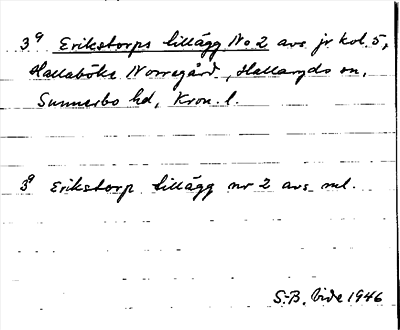 3⁹ Erikstorps tillägg No 2 avs. jr kol. 5,
Hallaböke Norregård, Hallaryds sn,
Sunnerbo hd, Kron. l.
3⁹ Erikstorp tillägg nr 2 avs. ml.
S-B. Vide 1946